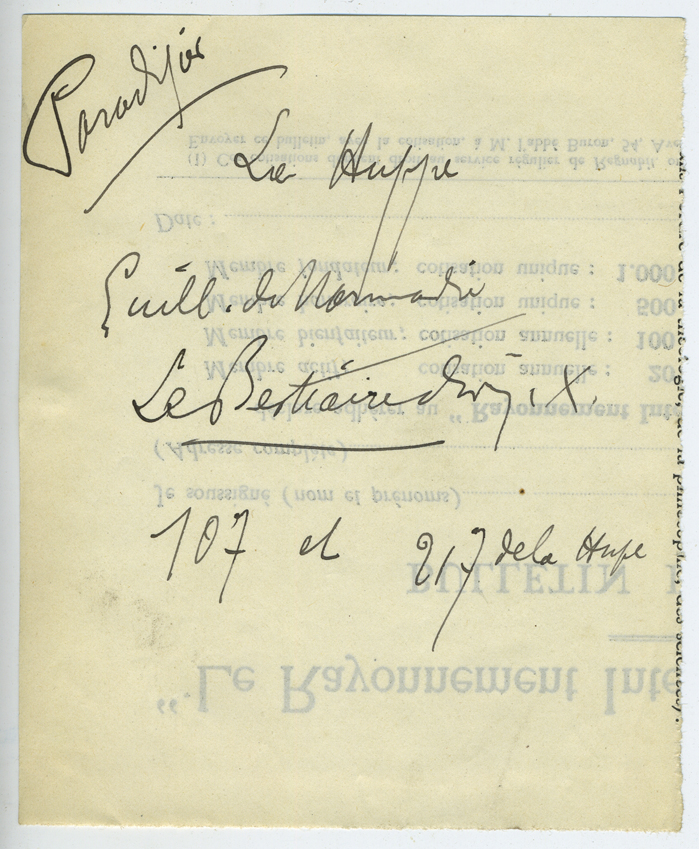 Paradisier
La Huppe
Guill. de Normandie
Le Bestiaire divin
107 et 217 de la Hupe
Envoyer ce bulletin, avec la cotisation, à M. l'abbé Buron, 54, Ave
(1) service régulier de Regnabit
Date :
Membre fondateur; cotisation unique : 1.000
Membre cotisation unique : 500
Membre bienfaiteur; cotisation annuelle : 100
Membre actif; cotisation annuelle : 20
adhérer au "Rayonnement Inte
(Adresse complète)
Je soussigné (nom et prénoms)
BULLETIN
"Le Rayonnement Inte